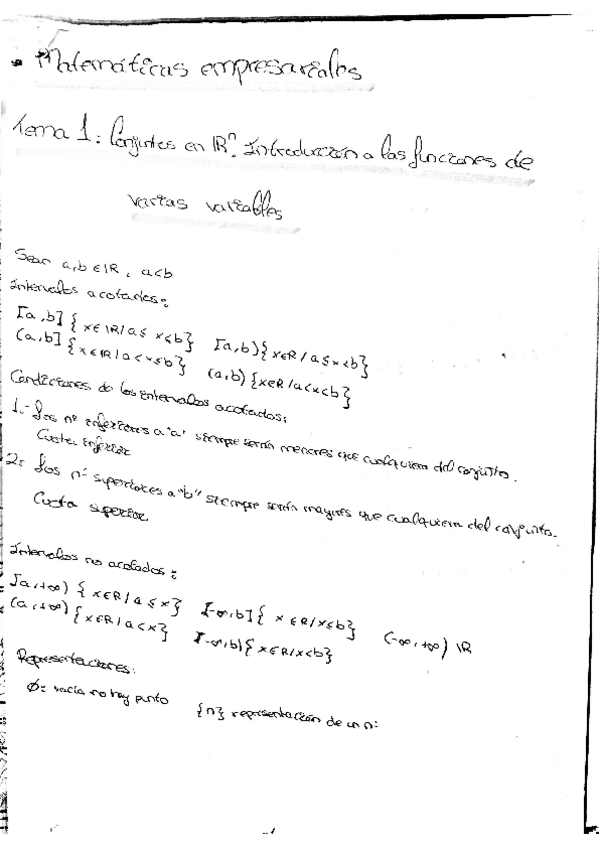 • Matemáticas empresariales
Tema 1: Conjuntos en ℝⁿ. Introducción a las funciones de
varias variables
Sean a,b ∈ ℝ, a<b
Intervalos acotados:
[a,b] {x∈ℝ/a≤x≤b} [a,b) {x∈ℝ/a≤x<b}
(a,b] {x∈ℝ/a<x≤b} (a,b) {x∈ℝ/a<x<b}
Condiciones de los intervalos acotados:
1.- Los nº inferiores a "a" siempre serán menores que cualquiera del conjunto.
Cota inferior
2: Los nº superiores a "b" siempre serán mayores que cualquiera del conjunto.
Cota superior
Intervalos no acotados:
[a,+∞) {x∈ℝ/a≤x} [-∞,b] {x∈ℝ/x≤b} (-∞,+∞) ℝ
(a,+∞) {x∈ℝ/a<x} [-∞,b) {x∈ℝ/x<b}
Representaciones:
Ø: vacía no hay punto {n} representación de un nº